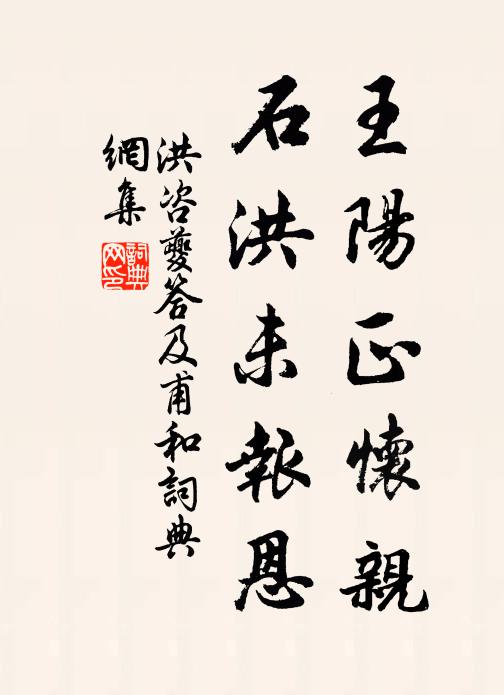 王陽正懷親
石洪未報恩
洪咨夔答及甫和詞典
網集
詞典網印